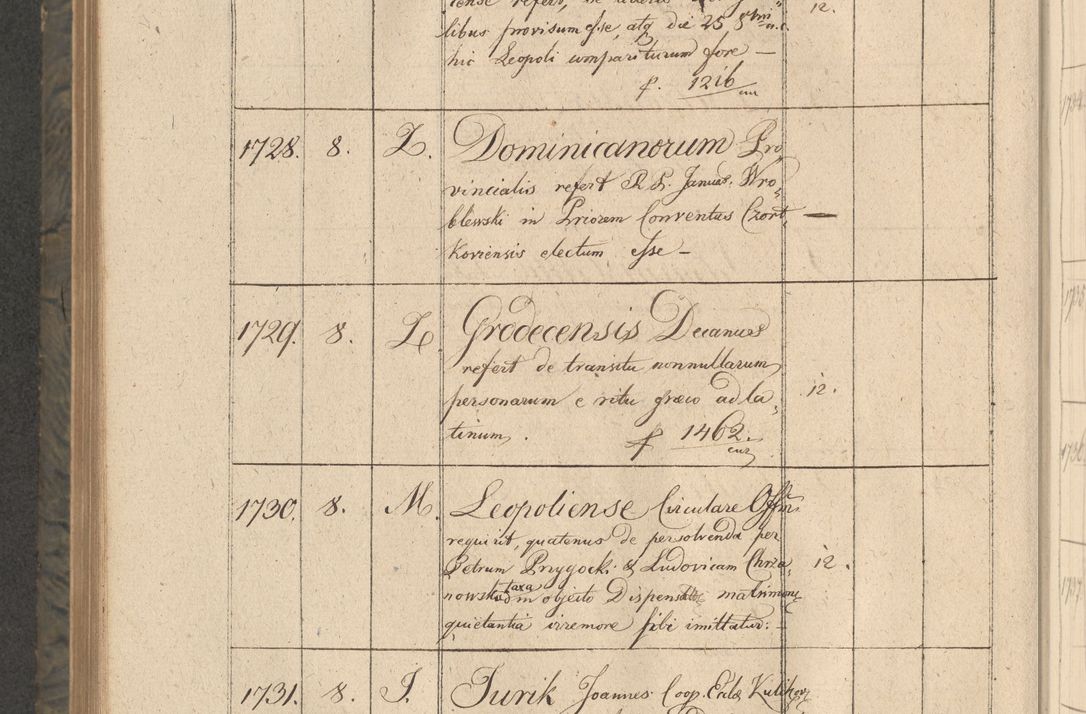 libus provisum esse, atq die 25 8bris a.c. 12.
hic Leopoli compariturum fore —
f. 1216
cur
1728. 8. Z. Dominicanorum Pro
vincialis refert R. F. Januar. Wro„
blewski in Priorem Conventus Czort„ —
Koviensis electum esse —
1729. 8. Z. Grodecensis Decanus
refert de transitu nonnullarum
personarum e ritu græco ad la„ 12.
tinum.
f 1462.
cur
1730. 8. M. Leopoliense Circulare Offm
requirit, quatenus de persolvenda per
Petrum Przygocki & Ludovicam Chrza„ 12.
nowska taxa in objecto Dispens matrimon
quietantia irremore sibi imittatur. —
1731. 8. J. Jurik Joannes Coop. Eccl Kulikov